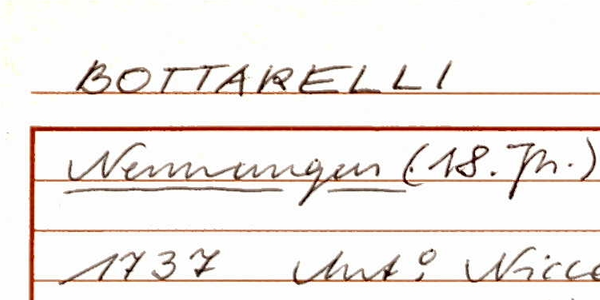 BOTTARELLI
Nennungen (18. Jh.)
1737 Ant.º Nicco